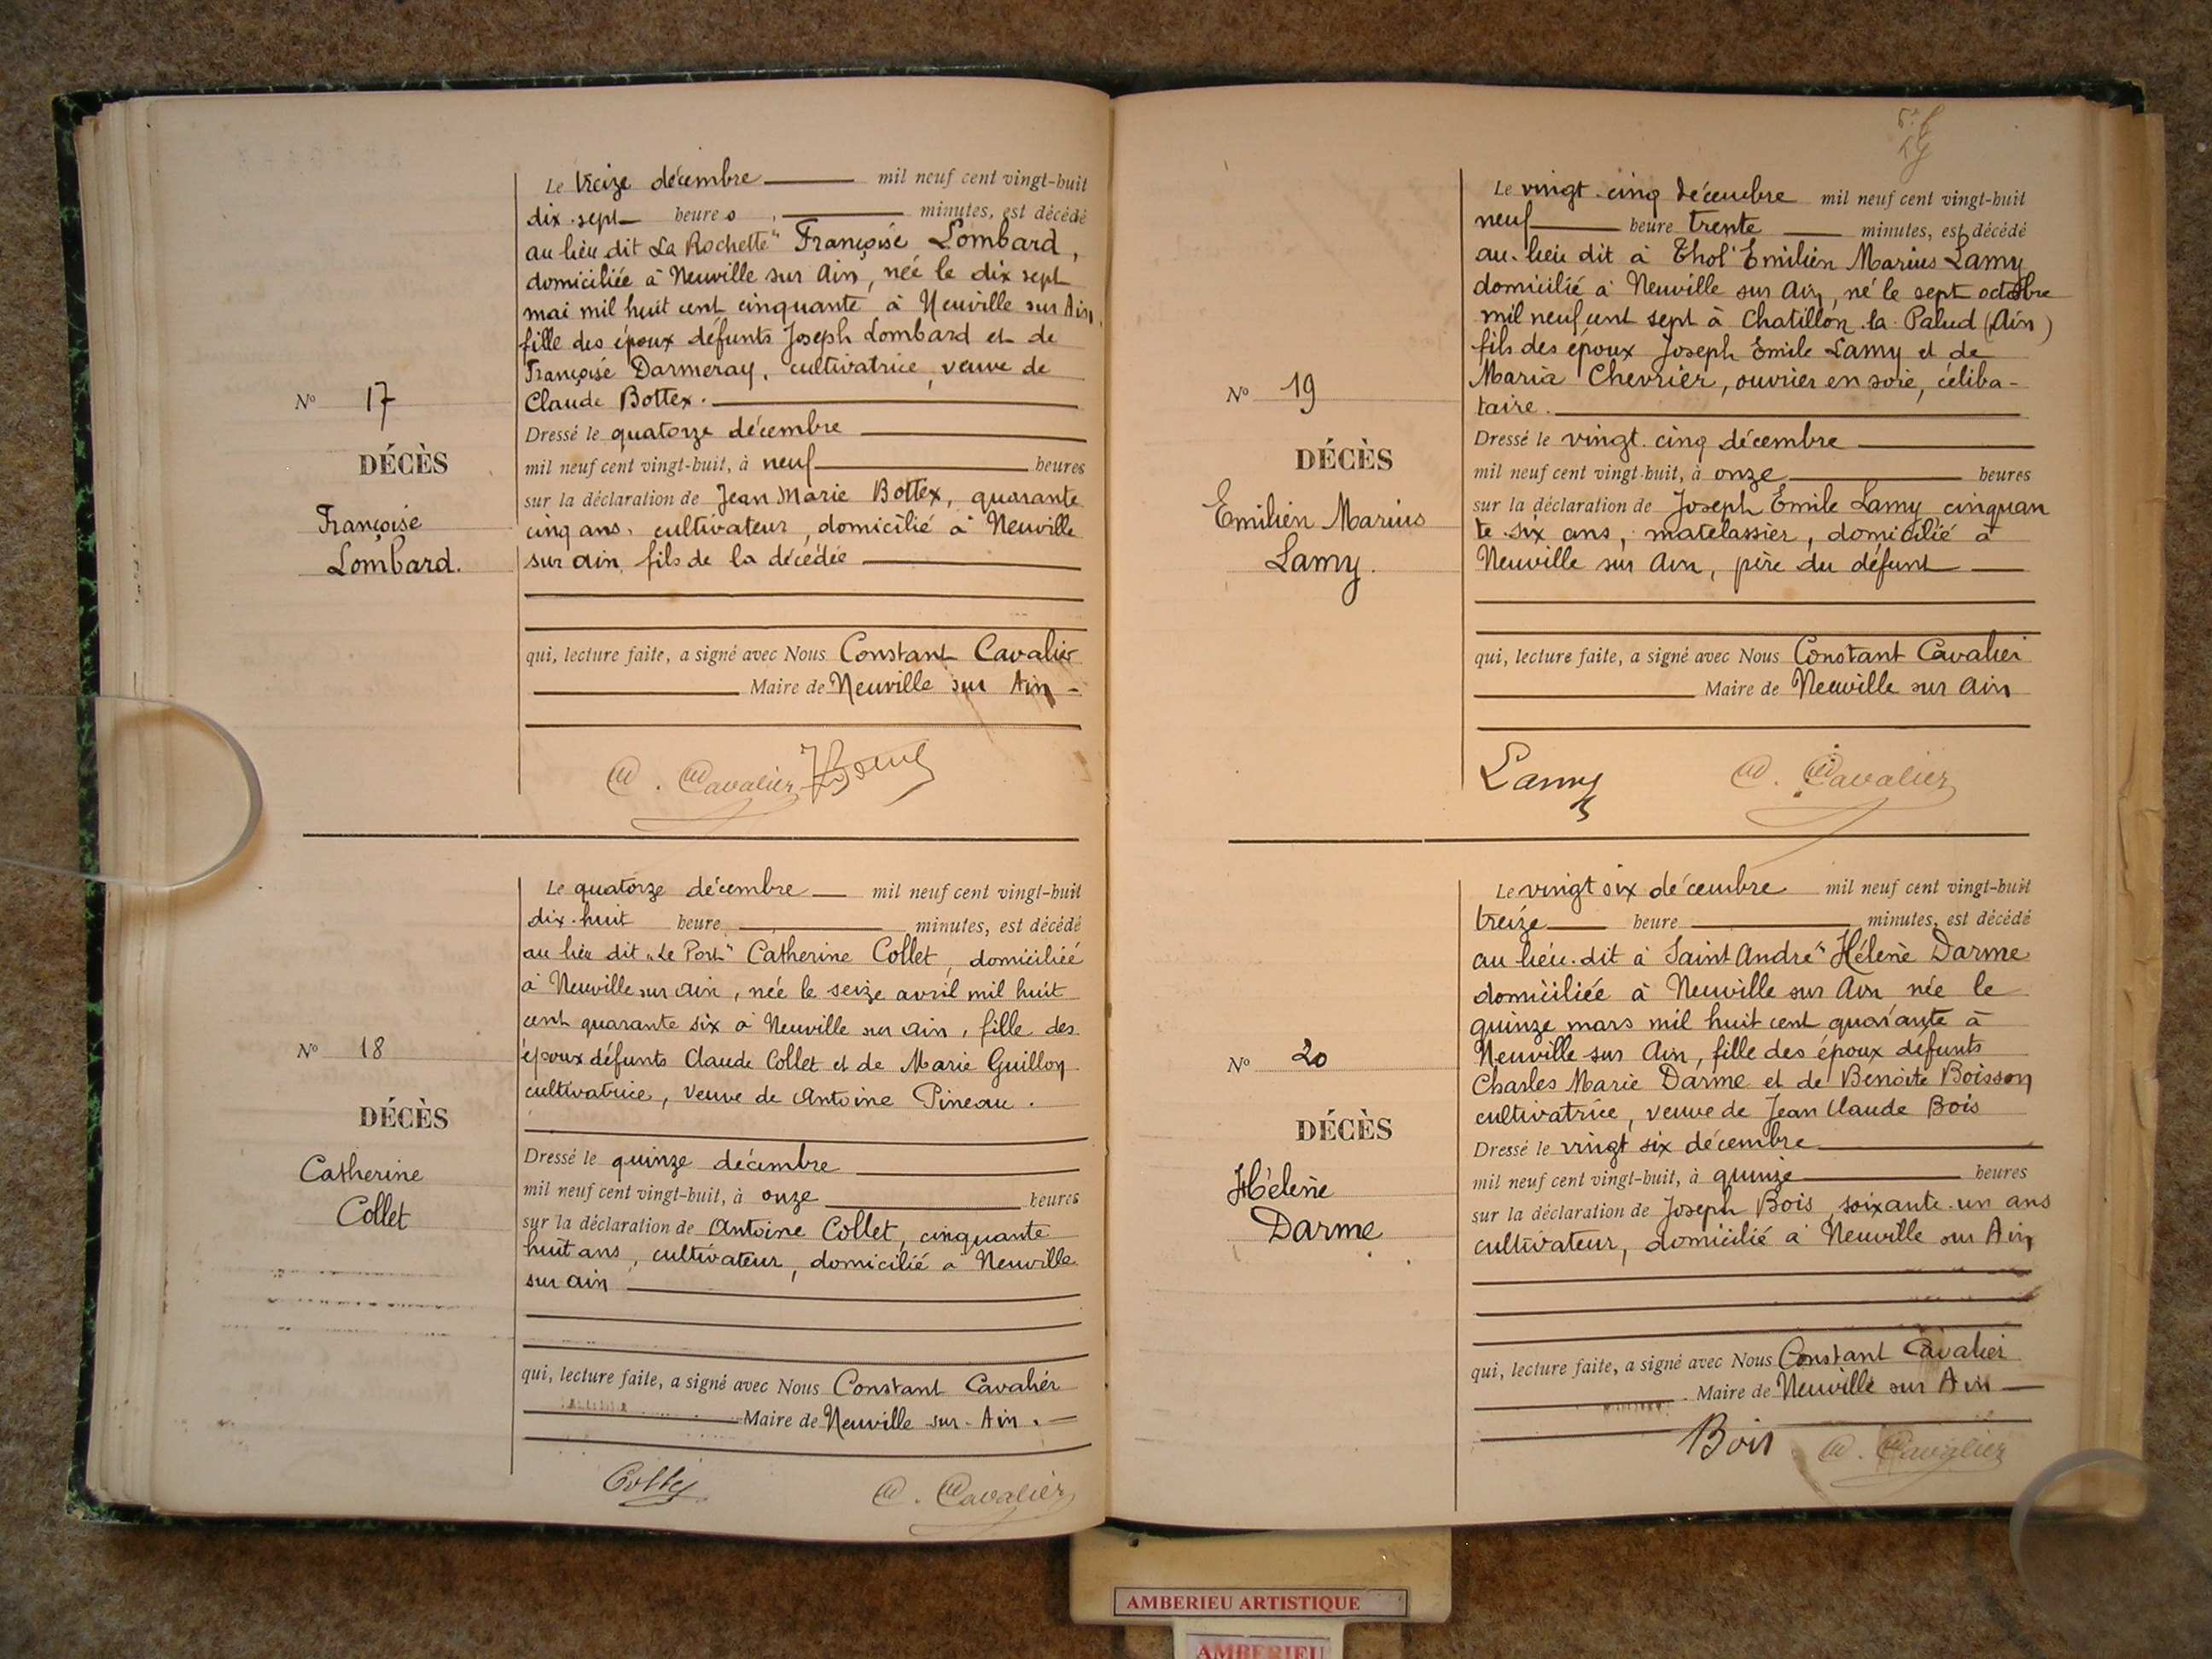 Le treize décembre mil neuf cent vingt-huit
dix-sept heures, minutes, est décédé
au lieu dit La Rochette" Françoise Lombard,
domiciliée à Neuville sur Ain, née le dix sept
mai mil huit cent cinquante à Neuville sur Ain,
fille des époux défunts Joseph Lombard et de
Françoise Darmeray, cultivatrice, veuve de
Claude Bottex.
Dressé le quatorze décembre
mil neuf cent vingt-huit, à neuf heures
sur la déclaration de Jean Marie Bottex, quarante
cinq ans, cultivateur, domicilié à Neuville
sur ain, fils de la décédée
qui, lecture faite, a signé avec Nous Constant Cavalier
Maire de Neuville sur Ain -
No 17
DÉCÈS
Françoise
Lombard.
C. Cavalier
Le quatorze décembre mil neuf cent vingt-huit
dix-huit heure minutes, est décédé
au lieu dit "Le Port" Catherine Collet, domiciliée
à Neuville sur ain, née le seize avril mil huit
cent quarante six à Neuville sur ain, fille des
époux défunts Claude Collet et de Marie Guillon
cultivatrice, veuve de Antoine Pineau.
Dressé le quinze décembre
mil neuf cent vingt-huit, à onze heures
sur la déclaration de Antoine Collet, cinquante
huit ans, cultivateur, domicilié a Neuville
sur ain
qui, lecture faite, a signé avec Nous Constant Cavalier
Maire de Neuville sur - Ain. -
No 18
DÉCÈS
Catherine
Collet
C. Cavalier
Le vingt-cinq décembre mil neuf cent vingt-huit
neuf heure trente minutes, est décédé
au lieu dit à Thol" Emilien Marius Lamy
domicilié à Neuville sur Ain, né le sept octobre
mil neuf cent sept à Chatillon-la-Palud (Ain)
fils des époux Joseph Emile Lamy et de
Maria Chevrier, ouvrier en soie, céliba-
taire.
Dressé le vingt-cinq décembre
mil neuf cent vingt-huit, à onze heures
sur la déclaration de Joseph Emile Lamy cinquan
te-six ans, matelassier, domicilié à
Neuville sur Ain, père du défunt
qui, lecture faite, a signé avec Nous Constant Cavalier
Maire de Neuville sur ain
No 19
DÉCÈS
Emilien Marius
Lamy.
Lamy C. Cavalier
Le vingt six décembre mil neuf cent vingt-huit
treize heure minutes, est décédé
au lieu-dit à Saint André" Hélène Darme
domiciliée à Neuville sur Ain née le
quinze mars mil huit cent quarante à
Neuville sur Ain, fille des époux défunts
Charles Marie Darme et de Benoite Boisson
cultivatrice, veuve de Jean Claude Bois
Dressé le vingt six décembre
mil neuf cent vingt-huit, à quinze heures
sur la déclaration de Joseph Bois, soixante-un ans
cultivateur, domicilié à Neuville sur Ain
qui, lecture faite, a signé avec Nous Constant Cavalier
Maire de Neuville sur Ain
No 20
DÉCÈS
Hélène
Darme
Bois C. Cavalier
AMBERIEU ARTISTIQUE
AMBERIEU